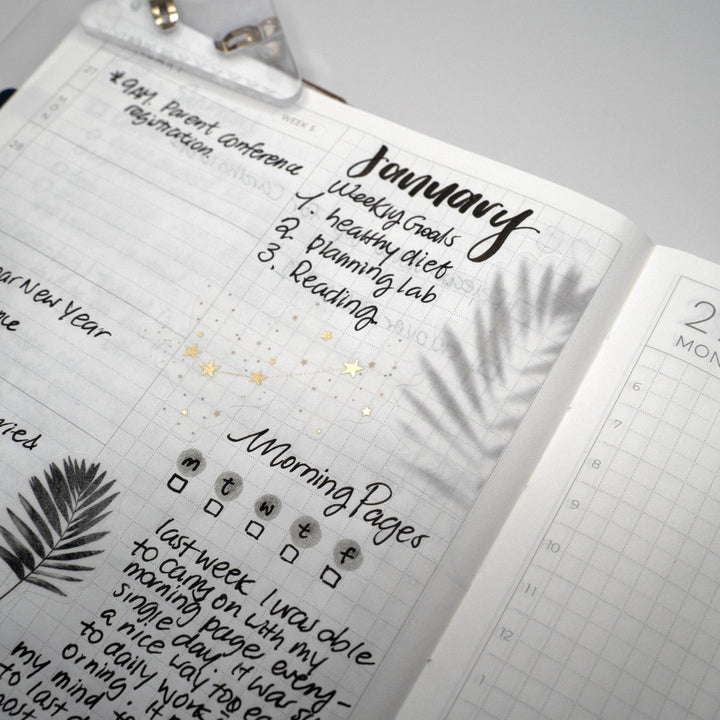 27
MON
*9AM. Parent conference
registration.
WEEK 5
28
January
Weekly Goals
1. healthy diet
2. planning lab
3. Reading.
New Year
Morning Pages
m t w t f
last week I was able
to carry on with my
morning pages every-
single day. It was
a nice way to
to daily work
orning. It
my mind to
to last
MON
6
7
8
9
10
11
12
1